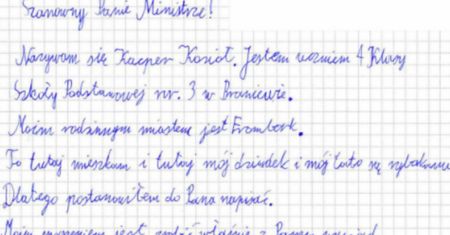 Szanowny Panie Ministrze!
Nazywam się Kacper Kozioł. Jestem uczniem 4 klasy
Szkoły Podstawowej nr. 3 w Braniewie.
Moim rodzinnym miastem jest Frombork.
To tutaj mieszkam i tutaj mój dziadek i mój tato są rybakami
Dlatego postanowiłem do Pana napisać.
Moim marzeniem jest